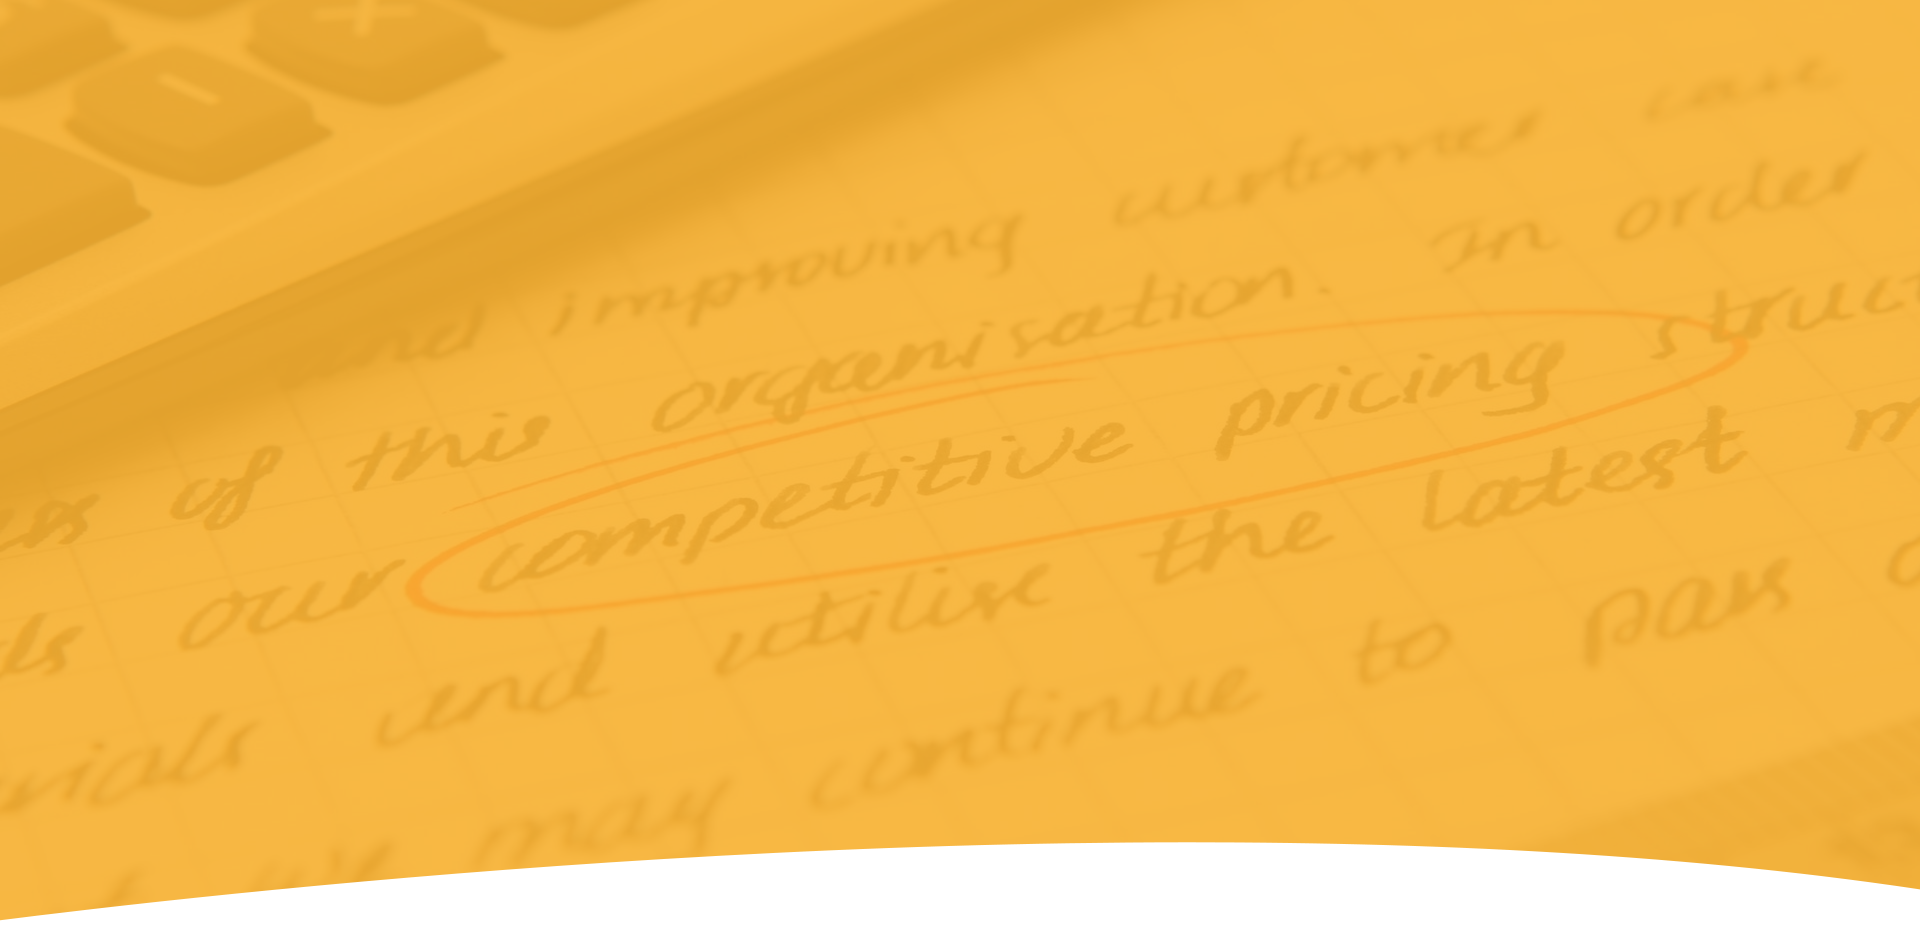 and improving customer care
of this organisation. In order
our competitive pricing struct
and utilise the latest
may continue to pass